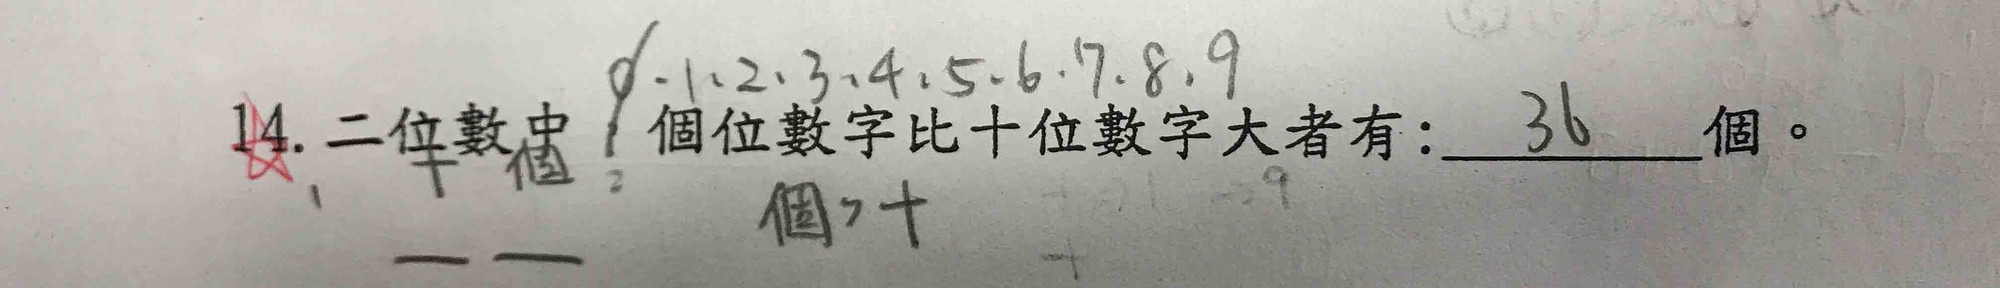 0.1、2、3、4、5、6.7、8、9
14. 二位數中 個位數字比十位數字大者有:36個。
十 個 2
個>十 9